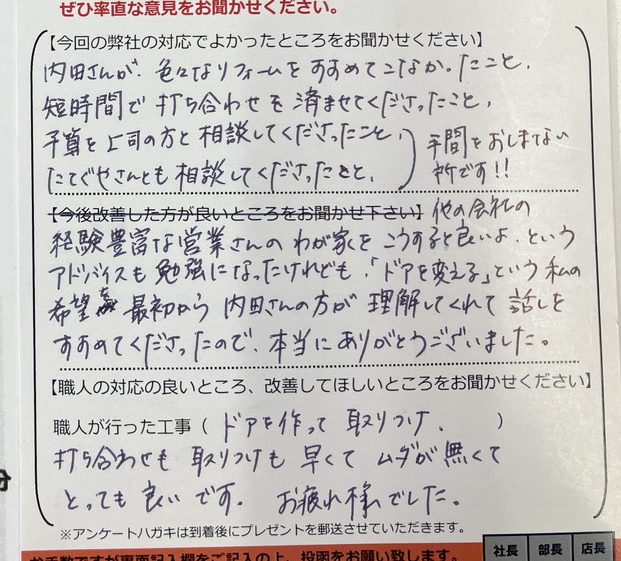 ぜひ率直な意見をお聞かせください。
【今回の弊社の対応でよかったところをお聞かせください】
内田さんが、色々なリフォームをすすめてこなかったこと、
短時間で打ち合わせを済ませてくださったこと、
予算を上司の方と相談してくださったこと、
たてぐやさんとも相談してくださったこと、
手間をおしまない
所です!!
【今後改善した方が良いところをお聞かせ下さい】他の会社の
経験豊富な営業さんのわが家をこうすると良いよ、という
アドバイスも勉強になったけれども、「ドアを変える」という私の
希望を最初から内田さんの方が理解してくれて話しを
すすめてくださったので、本当にありがとうございました。
【職人の対応の良いところ、改善してほしいところをお聞かせください】
職人が行った工事(ドアを作って取りつけ、)
打ち合わせも取りつけも早くてムダが無くて
とっても良いです。お疲れ様でした。
※アンケートハガキは到着後にプレゼントを郵送させていただきます。
お手数ですが裏面記入欄をご記入の上、投函をお願い致します。
社長 部長 店長
分